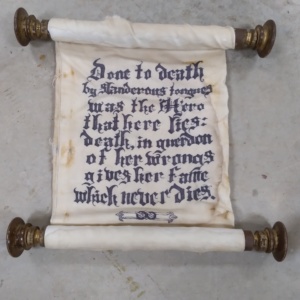 Done to death
by slanderous tongues
was the Hero
that here lies:
death, in guerdon
of her wrongs
gives her fame
which never dies.